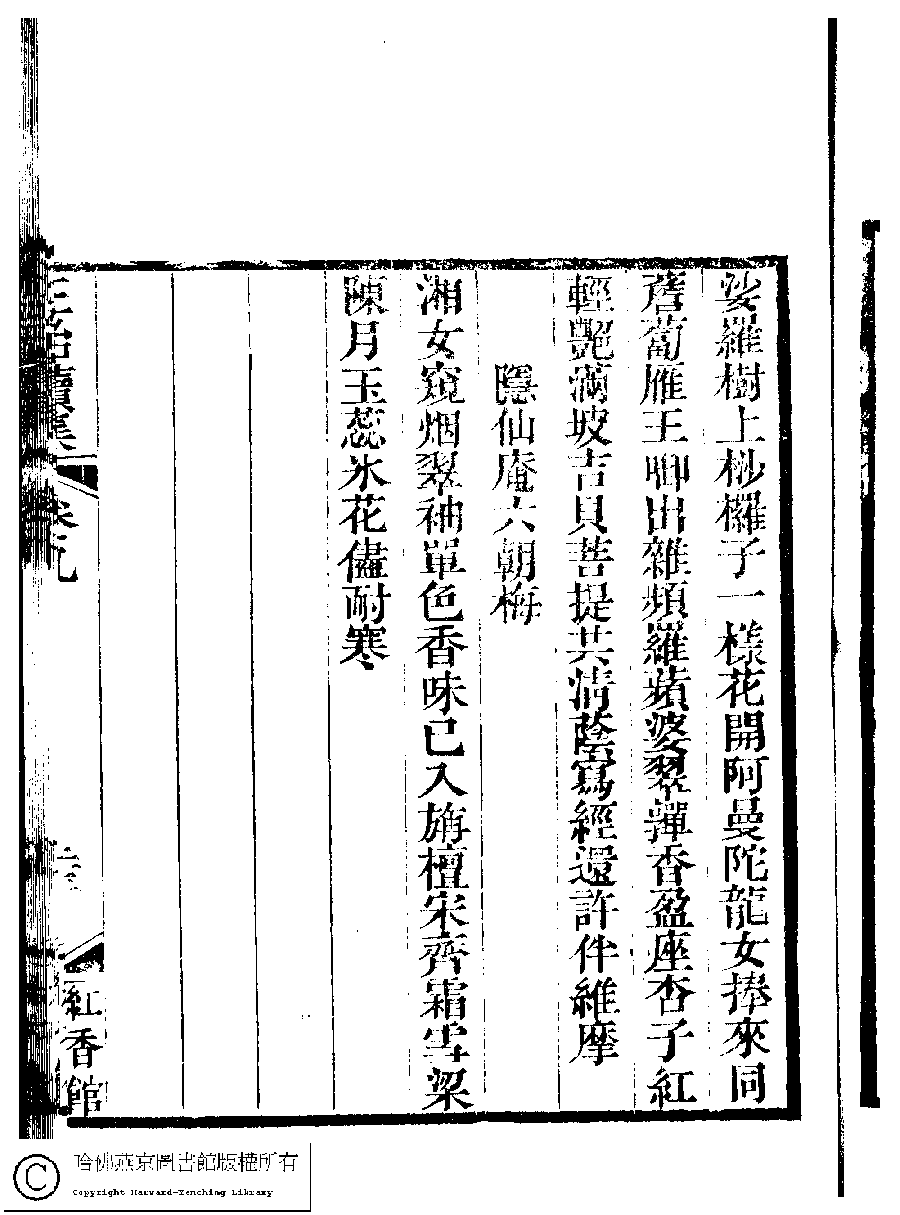 娑羅樹上桫欏子一樣花開阿曼陀龍女捧來同
薝蔔雁王啣出雜頻羅蘋婆翠嚲香盈座杏子紅
輕艷滿坡吉貝菩提共清蔭寫經還許伴維摩
隱仙庵六朝梅
湘女窺烟翠袖單色香味已入旃檀宋齊霜雪梁
陳月玉蕊氷花儘耐寒
續集
卷九
紅香館
哈佛燕京圖書館版權所有
Copyright Harvard-Yenching Library